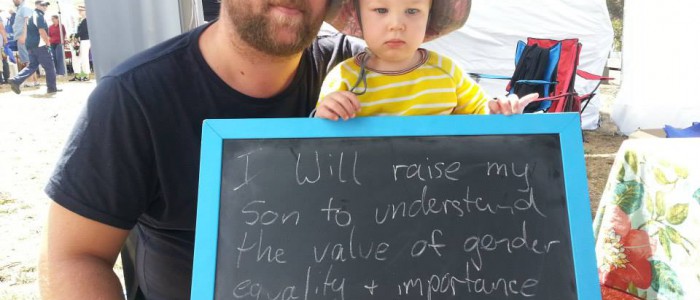 I Will raise my
Son to understand
the value of gender
equality + importance